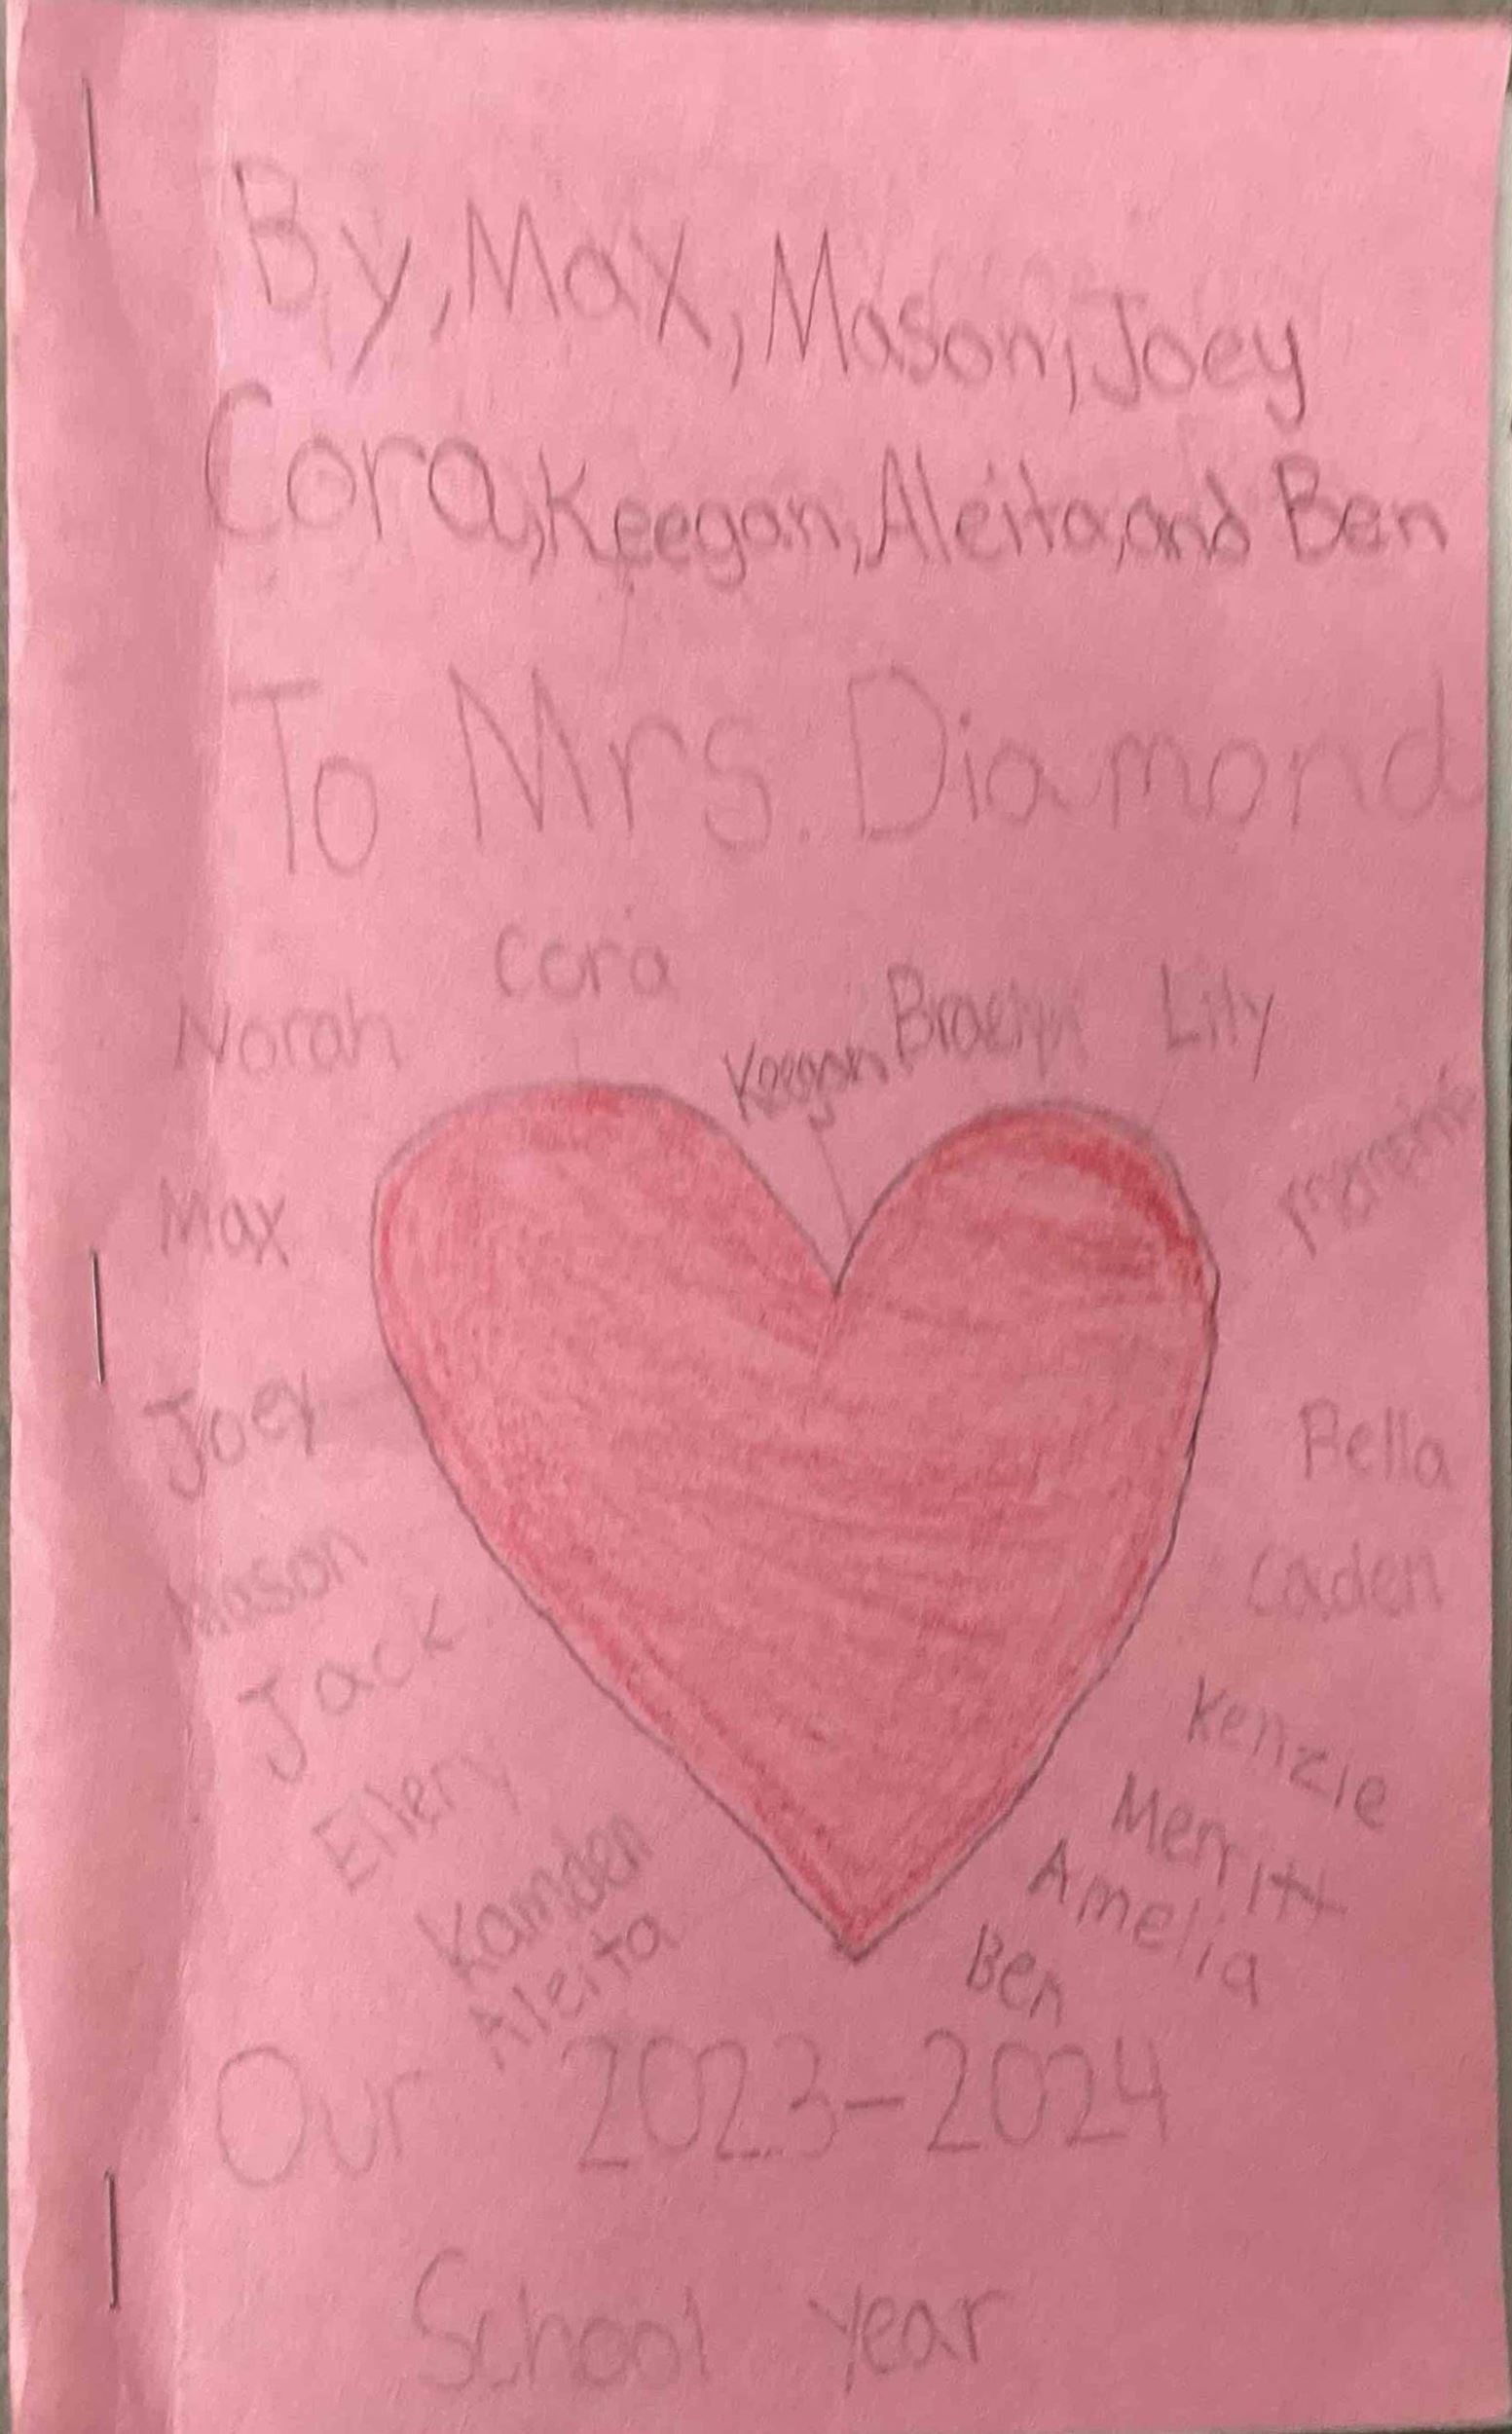 By, Max, Mason, Joey
Cora, Keegan, Aleita, and Ben
To Mrs. Diamond
Cora
Norah
Keegan
Braelyn
Lily
Max
Joey
Bella
Mason
Caden
Jack
Kenzie
Ellery
Merritt
Kamden
Amelia
Aleita
Ben
Our 2023-2024
School year